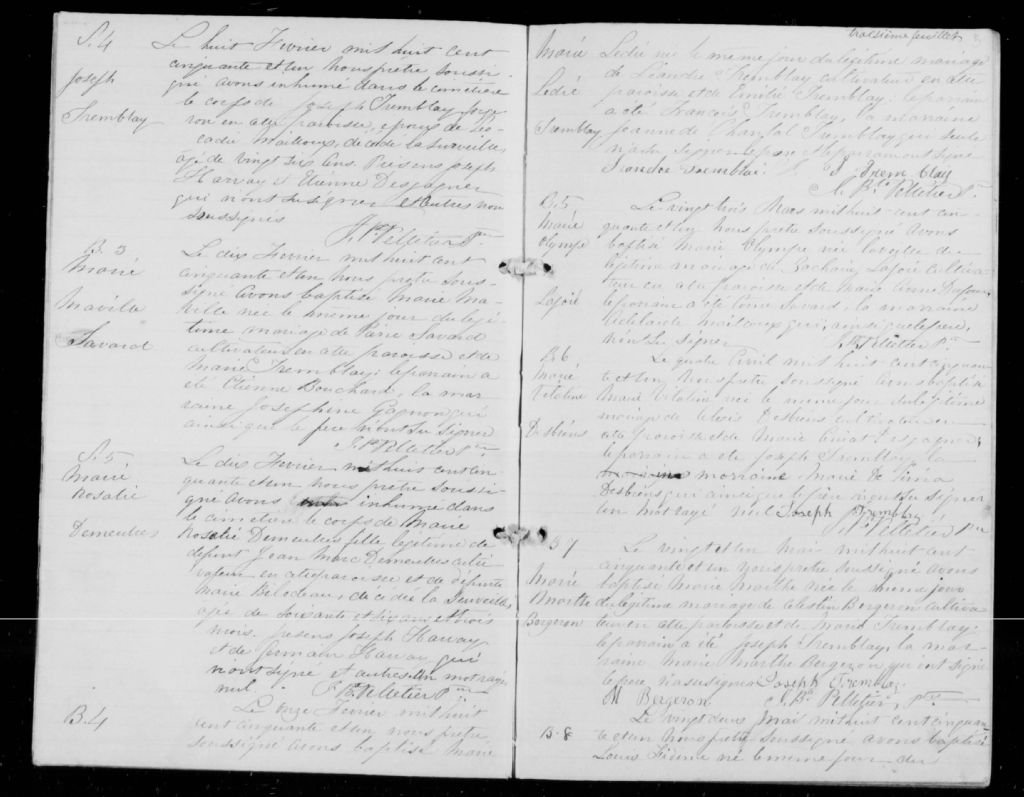 S. 4
Joseph
Tremblay
Le huit Fevrier mil huit cent
cinquante et un nous prêtre soussi-
gné avons inhumé dans le cimetière
le corps de Joseph Tremblay
en cette paroisse, époux de Lo-
cadie Mailloux, décédé la surveille,
agé de vingt six ans. Présens Joseph
Harvay et Etienne Desgagner
qui n'ont su signer et autres non
soussignés
J. Bte Pelletier Ptre
B. 3
Marie
Mavilla
Savard
Le dix Fevrier mil huit cent
cinquante et un nous prêtre sous-
signé avons baptisé Marie Ma-
ville née le meme jour du legi-
time mariage de Pierre Savard
cultivateur en cette paroisse et de
Marie Tremblay: le parrain a
été Etienne Bouchard, la mar-
raine Josephine Gagnon qui
ainsi que le père n'ont su signer
J. Bte Pelletier Ptre
S. 5
Marie
Rosalie
Demeules
Le dix Fevrier mil huit cent cin-
quante et un nous prêtre soussi-
gné avons inhumé dans
le cimetière le corps de Marie
Rosalie Demeules fille legitime de
defunt Jean Marc Demeules culti-
vateur en cette paroisse et de défunte
Marie Bilodeau, décédée la surveille,
agée de soixante et six ans et trois
mois. Presens Joseph Harvay
et de Germain Harvay qui
n'ont signé et autres. Un mot rayé
nul. J. Bte Pelletier Ptre
B. 4
Le onze Fevrier mil huit
cent cinquante et un nous prêtre
soussigné avons baptisé Marie
troisième feuillet
Marie
Ledié
Tremblay
Ledié née le meme jour du légitime mariage
de Léandre Tremblay cultivateur en cette
paroisse et de Emilie Tremblay: le parrain
a été François Tremblay, la marraine
Jeanne de Chantal Tremblay qui seule
n'a su signer le père et le parrain ont signé
Leandre Tremblai. F. Trem blay
J. Bte Pelletier Ptre
B. 5
Marie
Olympe
Lajoie
Le vingt trois Mars mil huit cent cin-
quante et un nous prêtre soussigné avons
baptisé Marie Olympe née la veille du
légitime mariage de Zacharie Lajoie cultiva-
teur en cette paroisse et de Marie Anne Dufour,
le parrain a été Savard, la marraine
Adelaide Mailloux qui, ainsi que le père,
n'ont su signer J. B. Pelletier Ptre
B. 6
Marie
Desbiens
Le quatre Avril mil huit cent cinquan-
te et un nous prêtre soussigné avons baptisé
Marie née le meme jour du légitime
mariage de Alexis Desbiens cultivateur en
cette paroisse et de Marie Desgagner;
le parrain a été Joseph Tremblay, la
marraine Marie
Desbiens qui ainsi que le père n'ont su signer
un mot rayé nul Joseph Trembley
J. Bte Pelletier Ptre
B 7
Marie
Marthe
Bergeron
Le vingt et un Mai mil huit cent
cinquante et un nous prêtre soussigné avons
baptisé Marie Marthe née le meme jour
du légitime mariage de Celestin Bergeron cultiva
teur en cette paroisse et de Marie Tremblay.
le parrain a été Joseph Tremblay, la mar-
raine Marie Marthe Bergeron qui ont signé
le père n'a su signer Joseph Tremblay.
M Bergeron J. Bte Pelletier, Ptre
B. 8
Le vingt deux Mai mil huit cent cinquan
te et un nous prêtre soussigné avons baptisé
Louis né le meme jour du